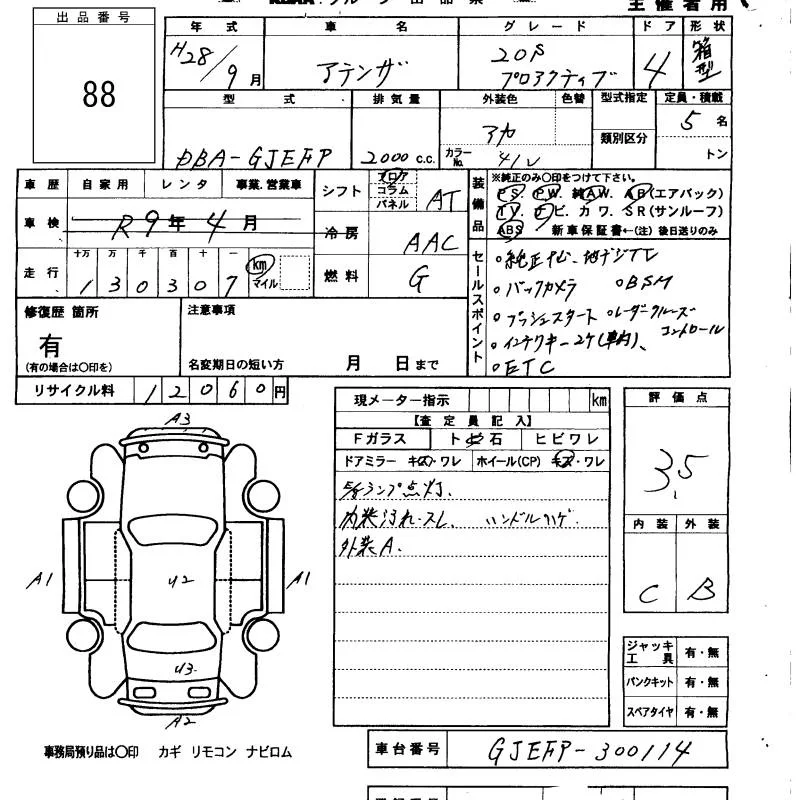 出品番号
88
年式 車名 グレード ドア 形状
H28/9月 アテンザ 20S プロアクティブ 4 箱型
型式 排気量 外装色 色替 型式指定 定員・積載
DBA-GJEFP 2000 c.c. アカ 類別区分 5名
カラーNo. 41V トン
車歴 自家用 レンタ 事業.営業車
車検 R9年4月
走行 十万 万 千 百 十 一
130307 km マイル
シフト フロア コラム パネル AT
冷房 AAC
燃料 G
装備品 ※純正のみ〇印をつけて下さい。
PS. PW. 純AW. AB(エアバック)
TV. ナビ. カワ. SR(サンルーフ)
ABS 新車保証書←(注)後日送りのみ
セールスポイント
○純正ナビ、地デジTV
○バックカメラ ○BSM
○プッシュスタート ○レーダークルーズコントロール
○インテリキー2ケ(車内)、
○ETC
修復歴 箇所
有
(有の場合は〇印を)
注意事項
名変期日の短い方 月 日まで
リサイクル料 12060円
現メーター指示 km
【査定員記入】
Fガラス ト ビ 石 ヒビワレ
ドアミラー キズ・ワレ ホイール(CP) キズ・ワレ
ランプ点灯、
内装汚れ・スレ ハンドルハゲ
外装A.
評価点
3.5
内装 外装
C B
ジャッキ工具 有・無
パンクキット 有・無
スペアタイヤ 有・無
A3
A1
U2
A1
U3
A2
事務局預り品は〇印 カギ リモコン ナビロム
車台番号 GJEFP-300114